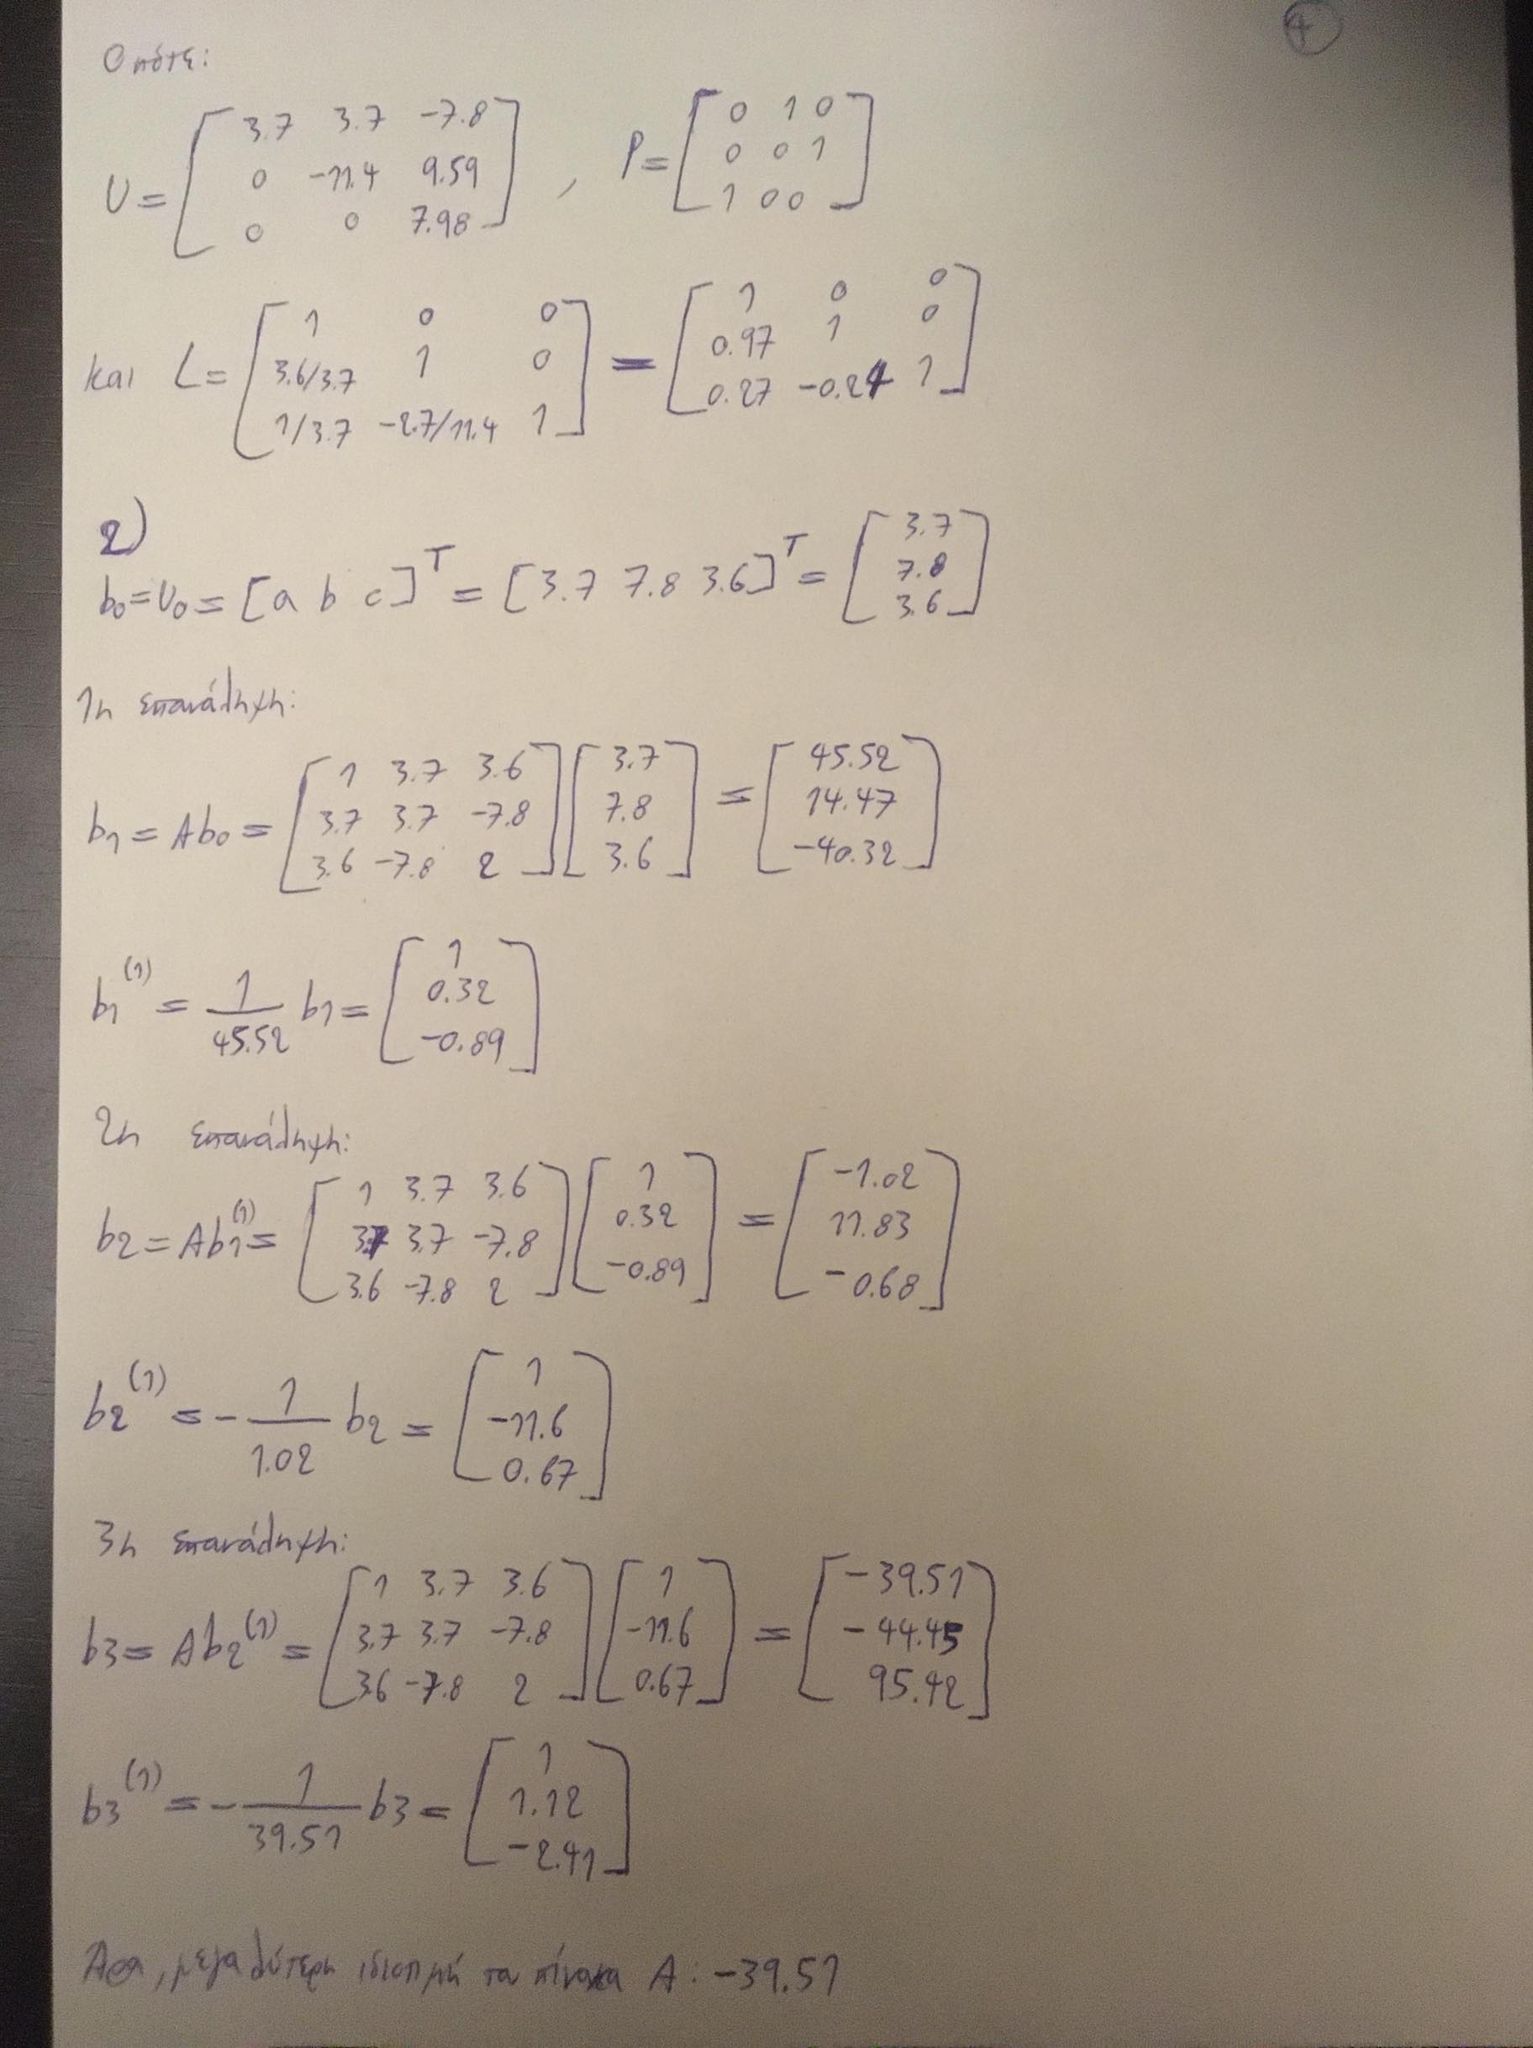 4
Οπότε:
U = [3.7 3.7 -7.8; 0 -11.4 9.59; 0 0 7.98] , P = [0 1 0; 0 0 1; 1 0 0]
και L = [1 0 0; 3.6/3.7 1 0; 1/3.7 -2.7/11.4 1] = [1 0 0; 0.97 1 0; 0.27 -0.24 1]
2)
b0 = U0 = [a b c]^T = [3.7 7.8 3.6]^T = [3.7; 7.8; 3.6]
1η επανάληψη:
b1 = Ab0 = [1 3.7 3.6; 3.7 3.7 -7.8; 3.6 -7.8 2] [3.7; 7.8; 3.6] = [45.52; 14.47; -40.32]
b1^(1) = 1/45.52 b1 = [1; 0.32; -0.89]
2η επανάληψη:
b2 = Ab1^(1) = [1 3.7 3.6; 3.7 3.7 -7.8; 3.6 -7.8 2] [1; 0.32; -0.89] = [-1.02; 11.83; -0.68]
b2^(1) = - 1/1.02 b2 = [1; -11.6; 0.67]
3η επανάληψη:
b3 = Ab2^(1) = [1 3.7 3.6; 3.7 3.7 -7.8; 3.6 -7.8 2] [1; -11.6; 0.67] = [-39.51; -44.45; 95.42]
b3^(1) = - 1/39.51 b3 = [1; 1.12; -2.41]
Άρα, μεγαλύτερη ιδιοτιμή του πίνακα A: -39.51